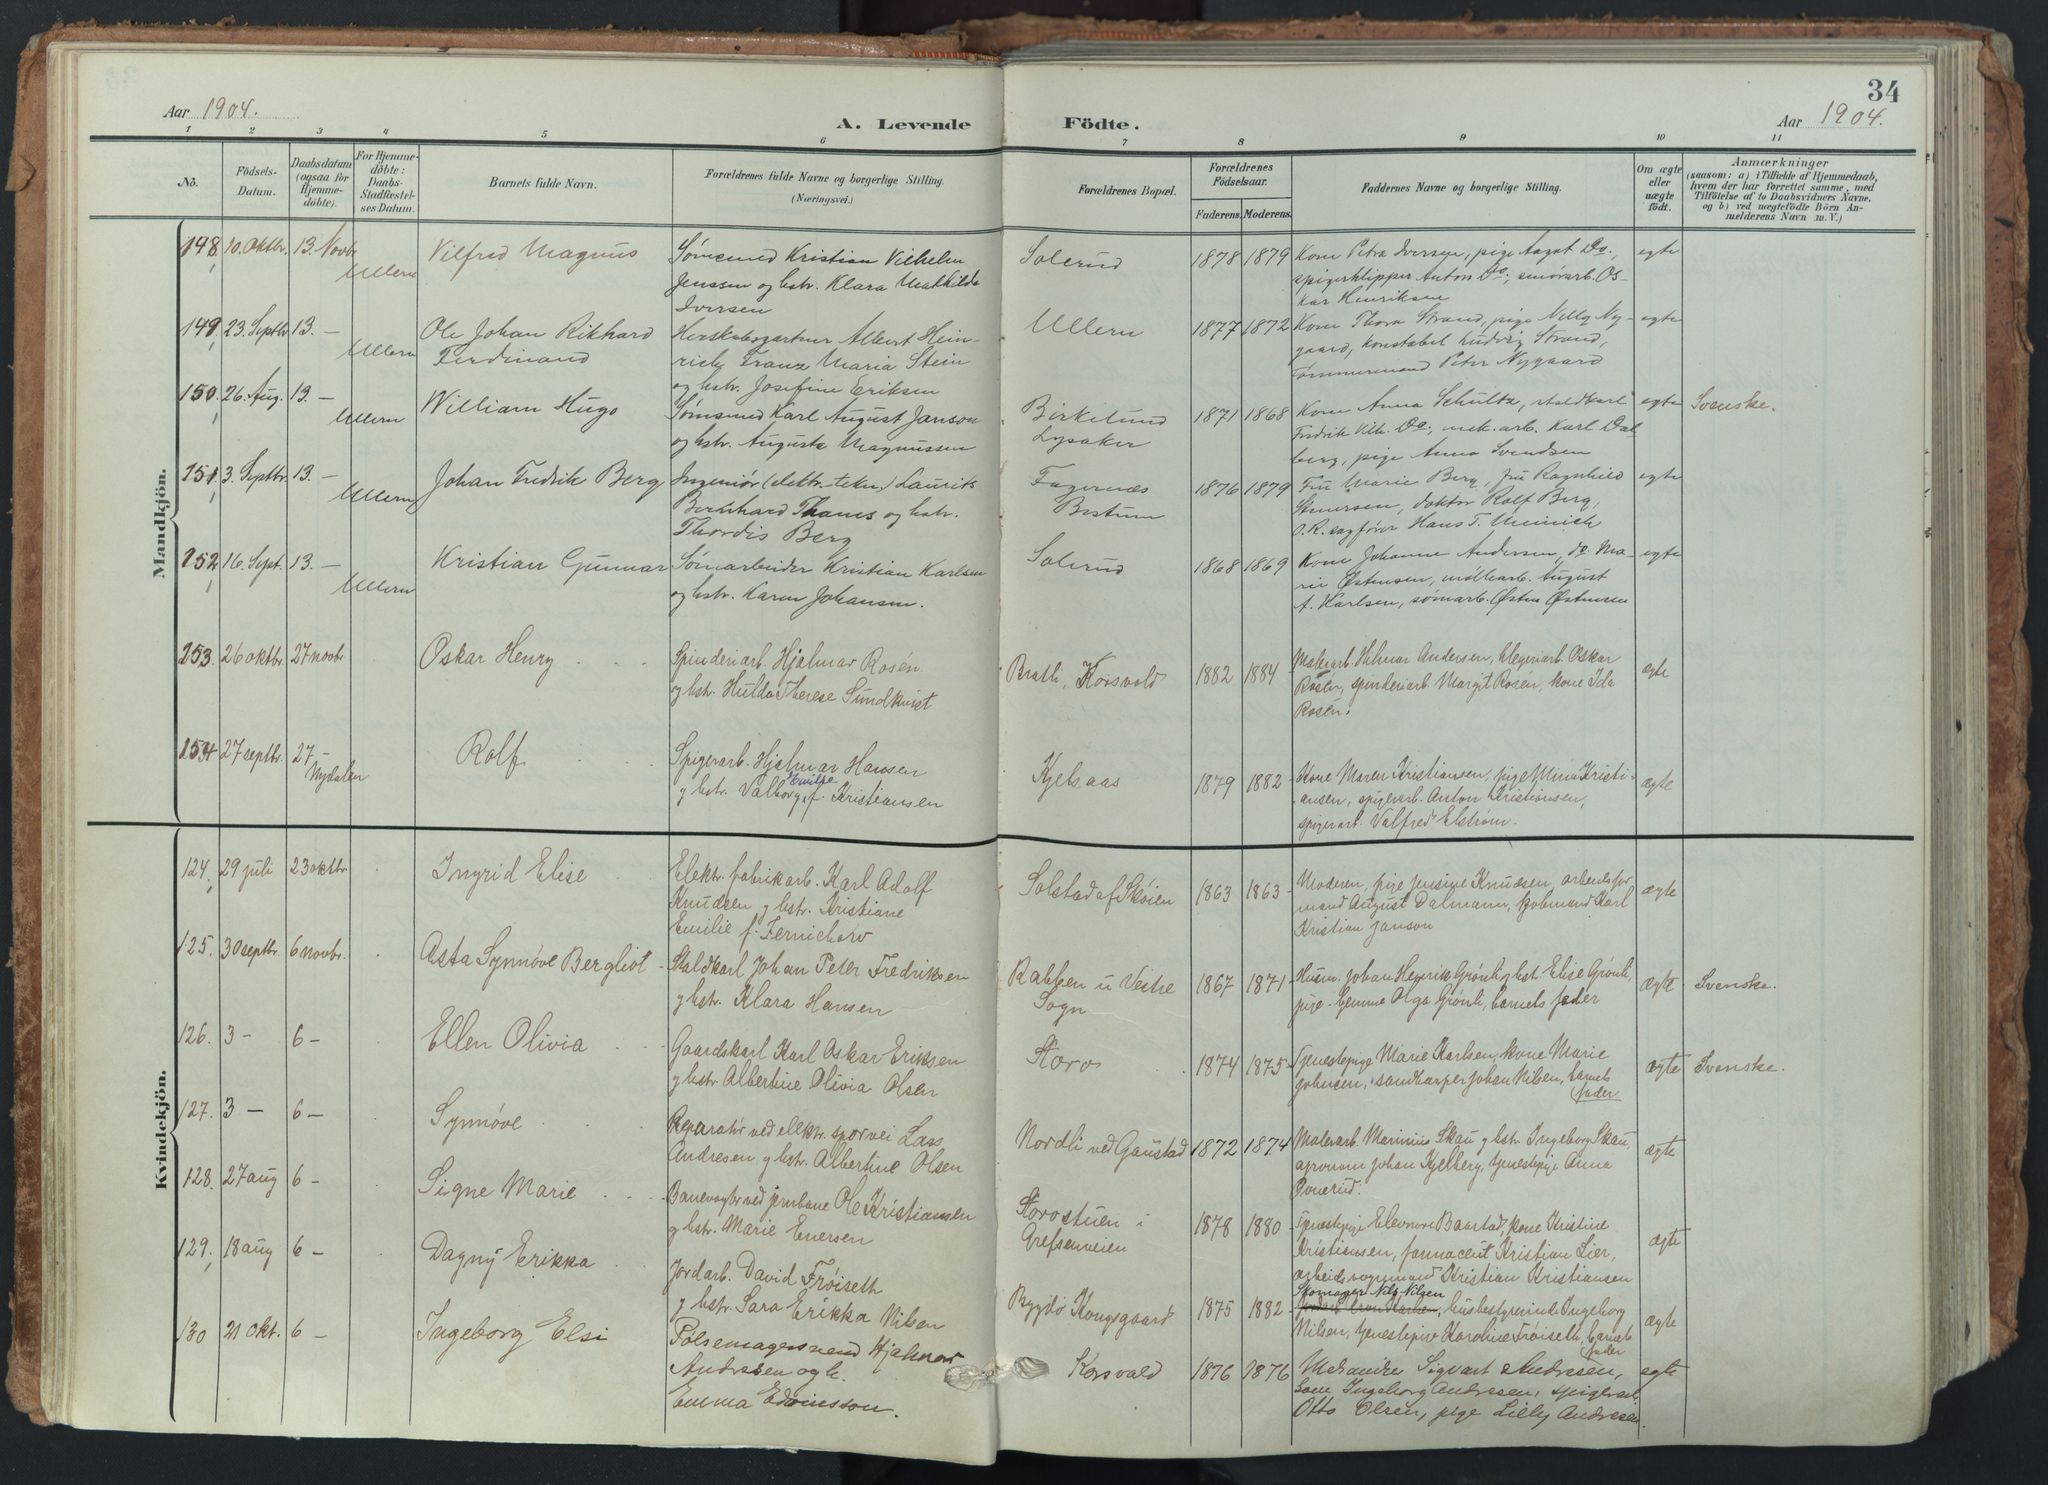 34
Aar 1904.
A. Levende Födte.
Aar 1904.
1 2 3 4 5 6 7 8 9 10 11
No.
Födsels-Datum.
Daabsdatum (ogsaa for Hjemme-döbte).
For Hjemme-döbte: Daabs-Stadfæstel-ses Datum.
Barnets fulde Navn.
Forældrenes fulde Navne og borgerlige Stilling.
(Næringsvei.)
Forældrenes Bopæl.
Forældrenes Födselsaar.
Faderens. Moderens.
Faddernes Navne og borgerlige Stilling.
Om ægte eller uægte födt.
Anmærkninger
(saasom: a) i Tilfælde af Hjemmedaab,
hvem der har forrettet samme, med
Tilföielse af to Daabsvidners Navne,
og b) ved uægtefödte Börn An-
melderens Navn m. V.)
Mandkjön.
148, 10. Oktbr. 13. Novbr Ullern Vilfred Magnus Sömsmed Kristian Vilhelm Solerud 1878 1879 Kone Petra Iversen, pige Aagot Do, egte
Jenssen og hstr. Klara Mathilde spigerklipper Anton Do; smörarb. Os-
Iversen kar Henriksen
149, 23. Septbr 13. — Ullern Ole Johan Rikhard Herskabsgartner Albert Hein- Ullern 1877 1872 Kone Thora Strand, pige Nelly Ny- egte
Ferdinand rich Franz Maria Stein gaard, konstabel Ludvig Strand,
og hstr. Josefine Eriksen tømmermand Peter Nygaard
150, 26. Aug. 13. — Ullern William Hugo Sømsmed Karl August Janson Birkelund 1871 1868 Kone Anna Schultz, staldkarl egte Svenske.
og hstr. Augusta Magnussen Lysaker Fredrik Vilh. Do; mek. arb. Karl Dal
berg, pige Anna Svendsen
151, 3. Septbr. 13. — Ullern Johan Fredrik Berg Ingeniör (elektr. tekn.) Laurits Fagernæs 1876 1879 Fru Marie Berg, fru Ragnhild egte
Bernhard Thams og hstr. Bestum Stenersen, doktor Rolf Berg,
Thordis Berg O.R.sagfører Hans T. Meinich
152, 16. Sept. 13. — Ullern Kristian Gunnar Sömarbeider Kristian Karlsen Solerud 1868 1869 Kone Johanne Andersen, do. Ma- egte
og hstr. Karen Johansen. rie Østensen, möllearb. August
A. Karlsen, sømarb. Østen Østensen
153. 26 oktbr. 27 novbr Oskar Henry Spinderiarb. Hjalmar Rosén Bratli, Korsvold 1882 1884 Malerarb. Hilmar Andersen, blegeriarb. Oskar ægte
og hstr. Hulda Therese Sundkvist Rosén, spinderiarb. Margit Rosén, kone Ida
Rosén.
154 27 septbr. 27 — Nydalen Rolf Spigerarb. Hjalmar Hansen Kjelsaas 1879 1882 Kone Maren Kristiansen, pige Mina Kristi- ægte
Emilie
g hstr. Valborg, f. Kristiansen ansen, spigerarb. Anton Kristiansen,
spigerarb. Valfred Elström.
Kvindekjön.
124. 29 juli 23 oktbr. Ingrid Elise Elektr. fabrikarb. Karl Adolf Solstad af Skøien 1863 1863 Moderen, pige Jensine Knudsen, arbeidsfor ægte
Knudsen g hstr. Kristiane mand August Dalmann, Karl
Emilie f. Kristian Janson
125. 30 septbr. 6 novbr. Asta Synnöve Bergliot Staldkarl Johan Peter Fredriksen Rabben u Vestre 1867 1871 Husm. Johan Henrik Grönli g hst. Elise Grönli, ægte Svenske.
g hstr. Klara Hansen Sogn pige Olga Grönli, barnets fader
126. 3 — 6 — Ellen Olivia Gaardskarl Karl Oskar Eriksen Storo 1874 1875 Tjenestepige Marie Karlsen, kone Marie ægte Svenske.
g hstr. Albertine Olivia Olsen Johnsen, sandharper Johan Nilsen, barnets
fader
127. 3 — 6 — Synnöve Reparatör ved elektr. sporvei Lars Nordli ved Gaustad 1872 1874 Malerarb. Marinius Skau g hstr. Ingeborg Skau, ægte
Andresen g hstr. Albertine Olsen agronom Johan Kjelberg, tjenestepige Anna
128. 27 aug 6 — Signe Marie Banevogter ved jernbane Ole Kristiansen Storostuen i 1878 1880 Tjenestepige Eleonore Baastad, kone Kristine ægte
g hstr. Marie Enersen Grefsenveien Kristiansen, farmaceut Kristian Lier,
arbeidsformand Kristian Kristiansen
129. 18 aug 6 — Dagny Erikka Jordarb. David Fröiseth Bygdö Kongsgaard 1875 1882 Skomager Nils Nilsen husbestyrerinde Ingeborg ægte
g hstr. Sara Erikka Nilsen Nilsen, tjenestepige Karoline Fröiseth, barnets
fader
130 21 Okt. 6 — Ingeborg Elsi Pølsemagersvend Hjalmar Korsvold 1876 1876 Mekaniker Sigvart Andresen, egte
Andresen og h. Ingeborg Andresen, spigerarb.
Emma Edvinsson. Otto Olsen, pige Lilly Andresen.